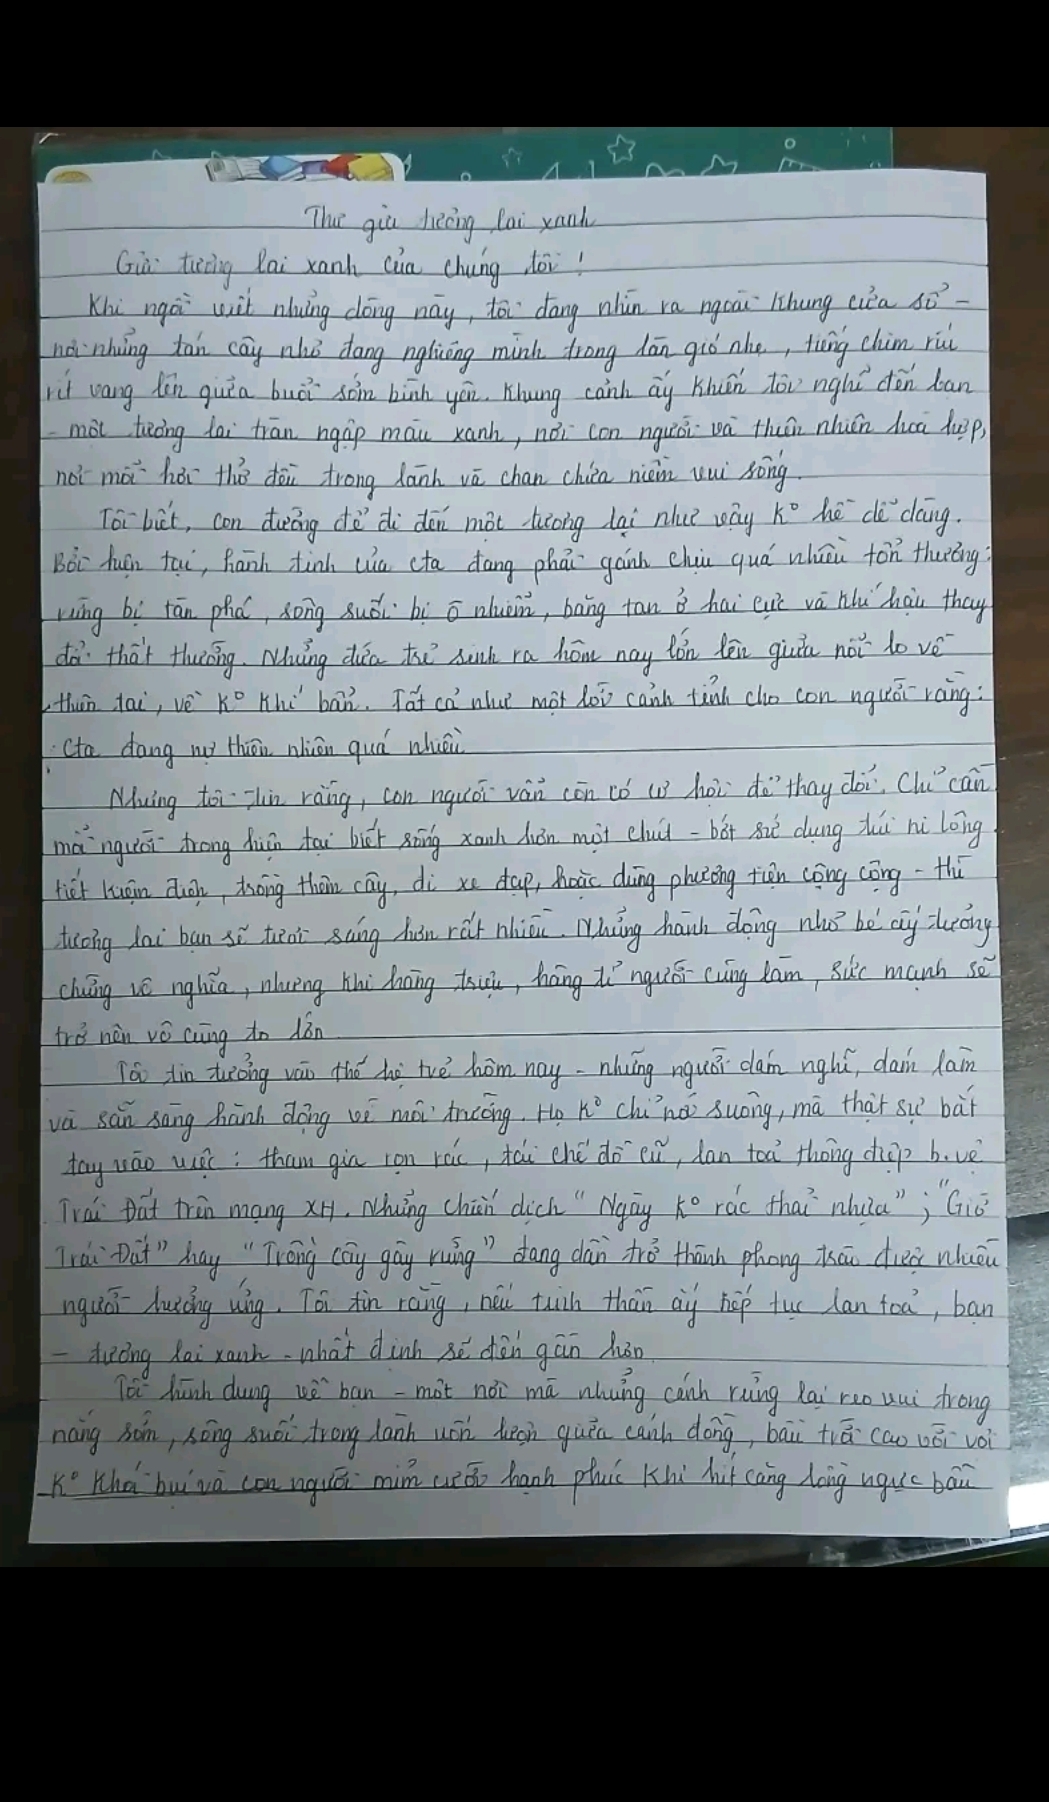 Thư gửi tương lai xanh
Gửi tương lai xanh của chúng tôi!
Khi ngồi viết những dòng này, tôi đang nhìn ra ngoài khung cửa sổ –
nơi những tán cây nhỏ đang nghiêng mình trong làn gió nhẹ, tiếng chim ríu
rít vang lên giữa buổi sớm bình yên. Khung cảnh ấy khiến tôi nghĩ đến bạn
– một tương lai tràn ngập màu xanh, nơi con người và thiên nhiên hoà hợp,
nơi mỗi hơi thở đều trong lành và chan chứa niềm vui sống.
Tôi biết, con đường để đi đến một tương lại như vậy K° hề dễ dàng.
Bởi hiện tại, hành tinh của cta đang phải gánh chịu quá nhiều tổn thương:
rừng bị tàn phá, sông suối bị ô nhiễm, băng tan ở hai cực và khí hậu thay
đổi thất thường. Những đứa trẻ sinh ra hôm nay lớn lên giữa nỗi lo về
thiên tai, về K° Khí bẩn. Tất cả như một lời cảnh tỉnh cho con người rằng:
cta đang nợ thiên nhiên quá nhiều
Nhưng tôi tin rằng, con người vẫn còn có cơ hội để thay đổi. Chỉ cần
mỗi người trong hiện tại biết sống xanh hơn một chút – bớt sử dụng túi ni lông
tiết kiệm điện, trồng thêm cây, đi xe đạp, hoặc dùng phương tiện công cộng – thì
tương lai bạn sẽ tươi sáng hơn rất nhiều. Những hành động nhỏ bé ấy tưởng
chừng vô nghĩa, nhưng khi hàng triệu, hàng tỉ người cùng làm, sức mạnh sẽ
trở nên vô cùng to lớn
Tôi tin tưởng vào thế hệ trẻ hôm nay – những người dám nghĩ, dám làm
và sẵn sàng hành động về môi trường. Họ K° chỉ nói suông, mà thật sự bắt
tay vào việc: tham gia rọn rác, tái chế đồ cũ, lan toả thông điệp b.vệ
Trái Đất trên mạng XH. Những chiến dịch "Ngày K° rác thải nhựa"; "Giờ
Trái Đất" hay "Trồng cây gây rừng" đang dần trở thành phong trào được nhiều
người hưởng ứng. Tôi tin rằng, nếu tinh thần ấy tiếp tục lan toả, bạn
– tương lai xanh – nhất định sẽ đến gần hơn
Tôi hình dung về bạn – một nơi mà những cánh rừng lại reo vui trong
nắng sớm, sông suối trong lành uốn lượn giữa cánh đồng, bầu trời cao vời vợi
K° Khói bụi và con người mỉm cười hạnh phúc khi hít căng lồng ngực bầu